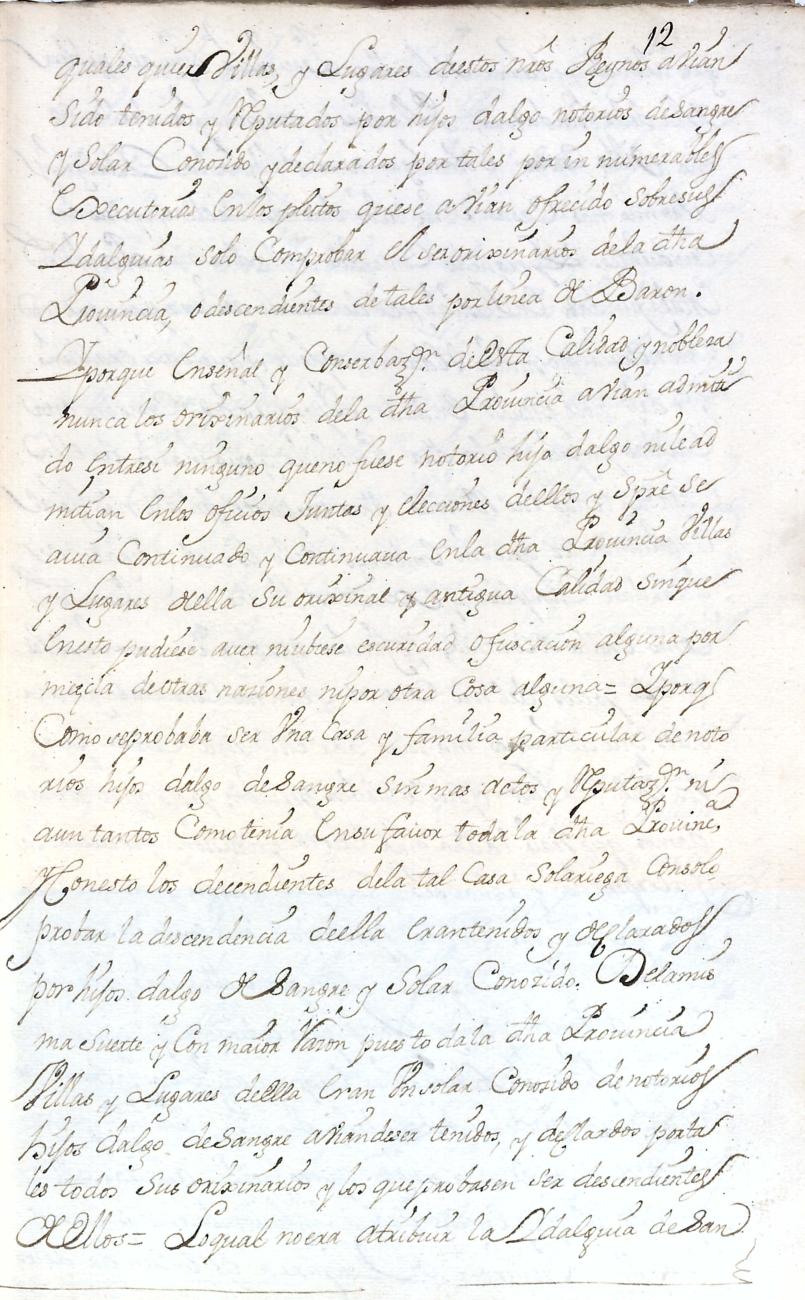 12
quales quier Villas, y Lugares deestos nrôs Reynos avian
sido tenidos y Reputados por hijos dalgo notorios desangre
y Solar Conosido ydeclarados por tales por in numerables
Executorias Enlos pleitos quese avian ofrecido Sobresus
Ydalguias solo Comprobar El serorixinarios dela dha
Provincia, odescendientes detales porlinea de Baron.
Yporque Enseñal y Conserbazon. deesta Calidad y nobleza
nunca los orixinarios dela dha Provincia avian admiti
do Entresi ninguno queno fuese notorio hijo dalgo nile ad
mitian Enlos oficios Juntas y Elecciones deellos y Spre se
avia Continuado y Continuava Enla dha Provincia Villas
y Lugares della Su orixinal y antigua Calidad Sinque
Enesto pudiese aver niubiese escuridad ofuscacion alguna por
mezcla deotras nasiones nipor otra Cosa alguna= Yporq
Como seprobaba ser Vna Casa y familia particular denoto
rios hijos dalgo deSangre sinmas actos y Reputazon. ni
aun tantos Comotenia Ensufavor todala dha Provinca,
Yconesto los decendientes dela tal Casa Solariega Consolo
probar la descendencia deella Erantenidos y declarados
por hijos dalgo de Sangre y Solar Conozido. Delamis
ma Suerte y Con maior Razon pues todala dha Provincia
Villas y Lugares deella Eran Vnsolar Conosido denotorios
hijos dalgo deSangre aviandeser tenidos, y declardos porta
les todos Sus orixinarios y los queprobasen ser descendientes
de Ellos= Loqual noera atribuir la Ydalguia de San